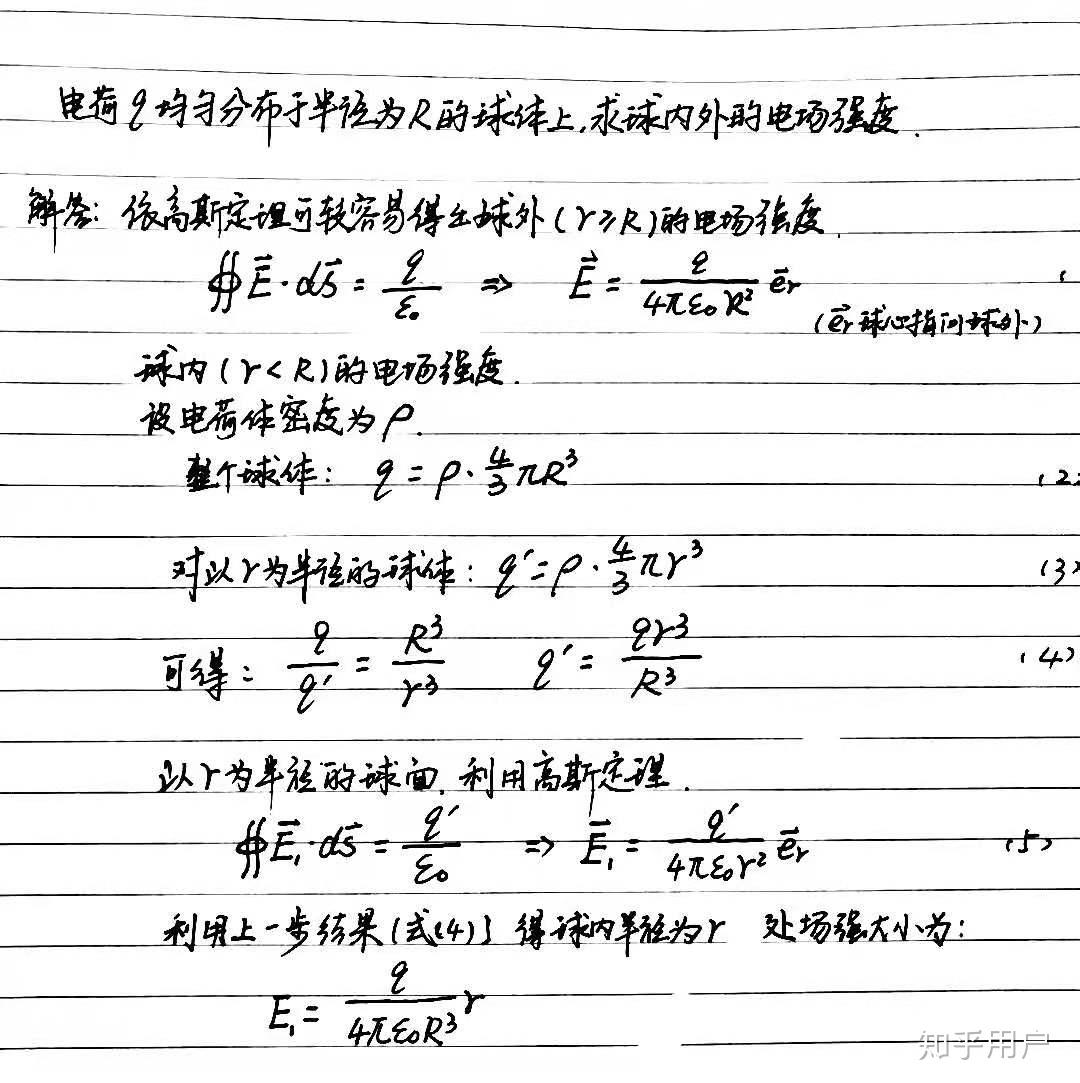 电荷q均匀分布于半径为R的球体上,求球内外的电场强度.
解答: 依高斯定理可较容易得出球外(r≥R)的电场强度.
∯E⃗·dS⃗ = q/ε₀ ⇒ E⃗ = q/(4πε₀R²) e⃗r
(e⃗r 球心指向球外)
球内(r<R)的电场强度.
设电荷体密度为ρ.
整个球体: q = ρ·4/3 πR³ (2)
对以r为半径的球体: q′=ρ·4/3 πr³ (3)
可得: q/q′ = R³/r³ q′ = qr³/R³ (4)
以r为半径的球面,利用高斯定理.
∯E⃗₁·dS⃗ = q′/ε₀ ⇒ E⃗₁ = q′/(4πε₀r²) e⃗r (5)
利用上一步结果(式(4)) 得球内半径为r 处场强大小为:
E₁ = q/(4πε₀R³) r
知乎用户